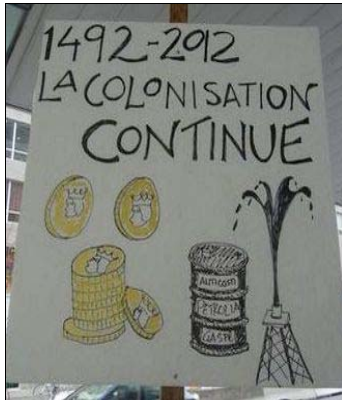 1492-2012
LA COLONISATION
CONTINUE
PETROLIA
GASPÉ